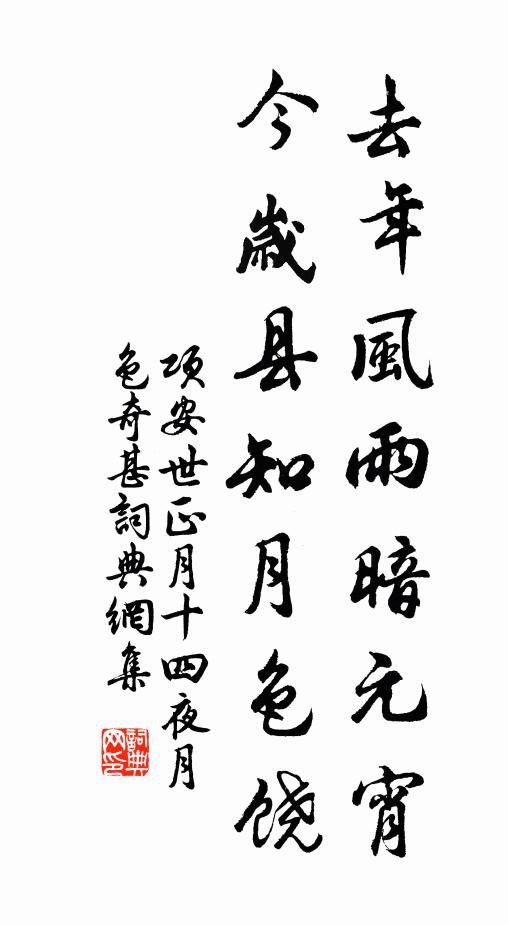 去年風雨暗元宵
今歲县知月色饶
項安世正月十四夜月
色奇甚詞典網集
詞典网印